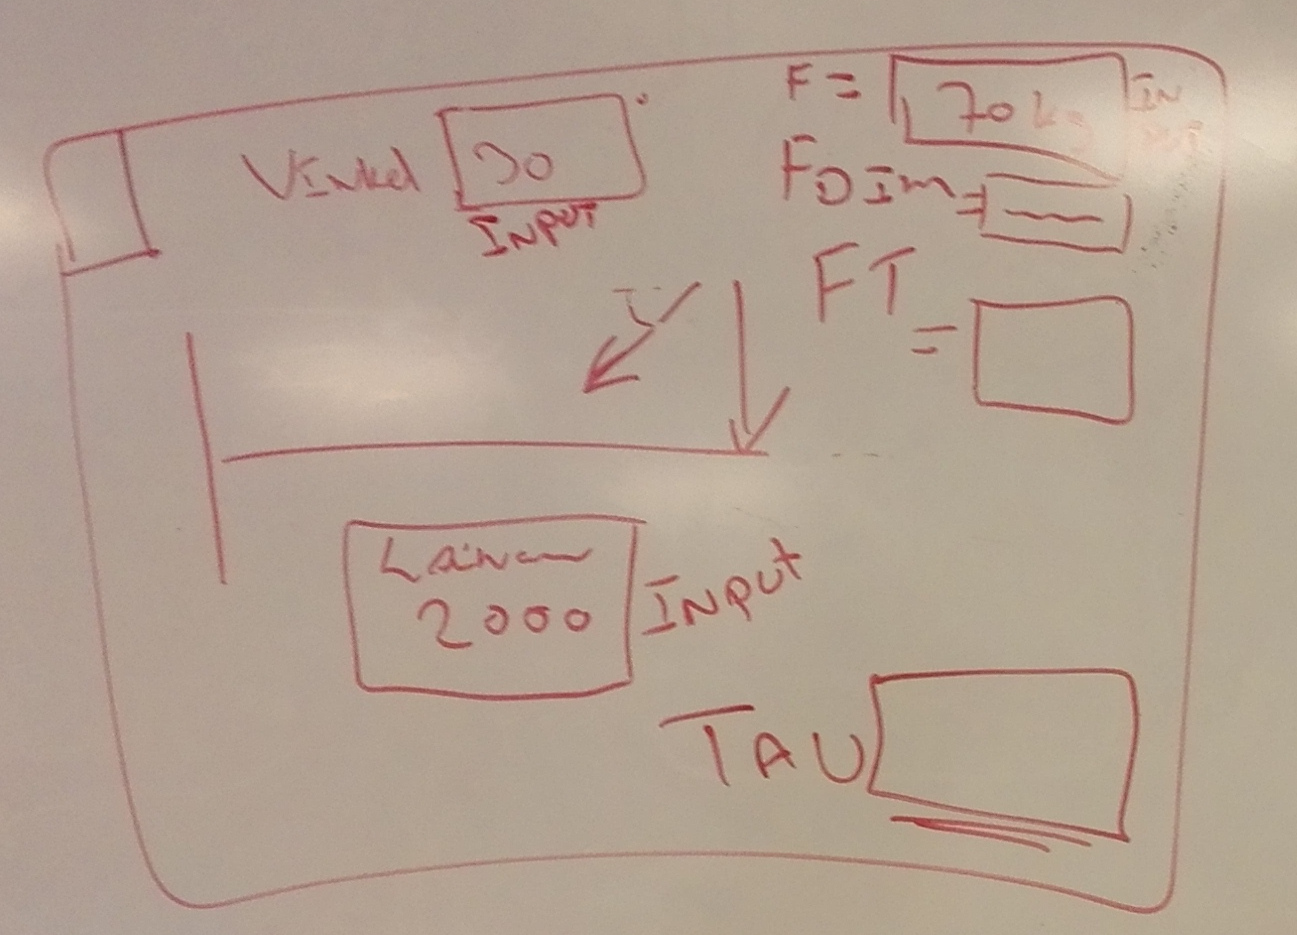 Vinkel 30
INPUT
F = 70 kg IN
FDIM =
FT =
2000
INPUT
TAU